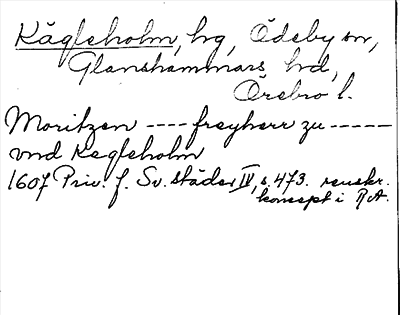 Kägleholm, hg, Ödeby sn,
Glanshammars hd,
Örebro l.
Moritzen ---- freyherr zu -----
vnd Kegleholm
1607 Priv. f. Sv. städer IV, s. 473. renskr.
koncept i RA.